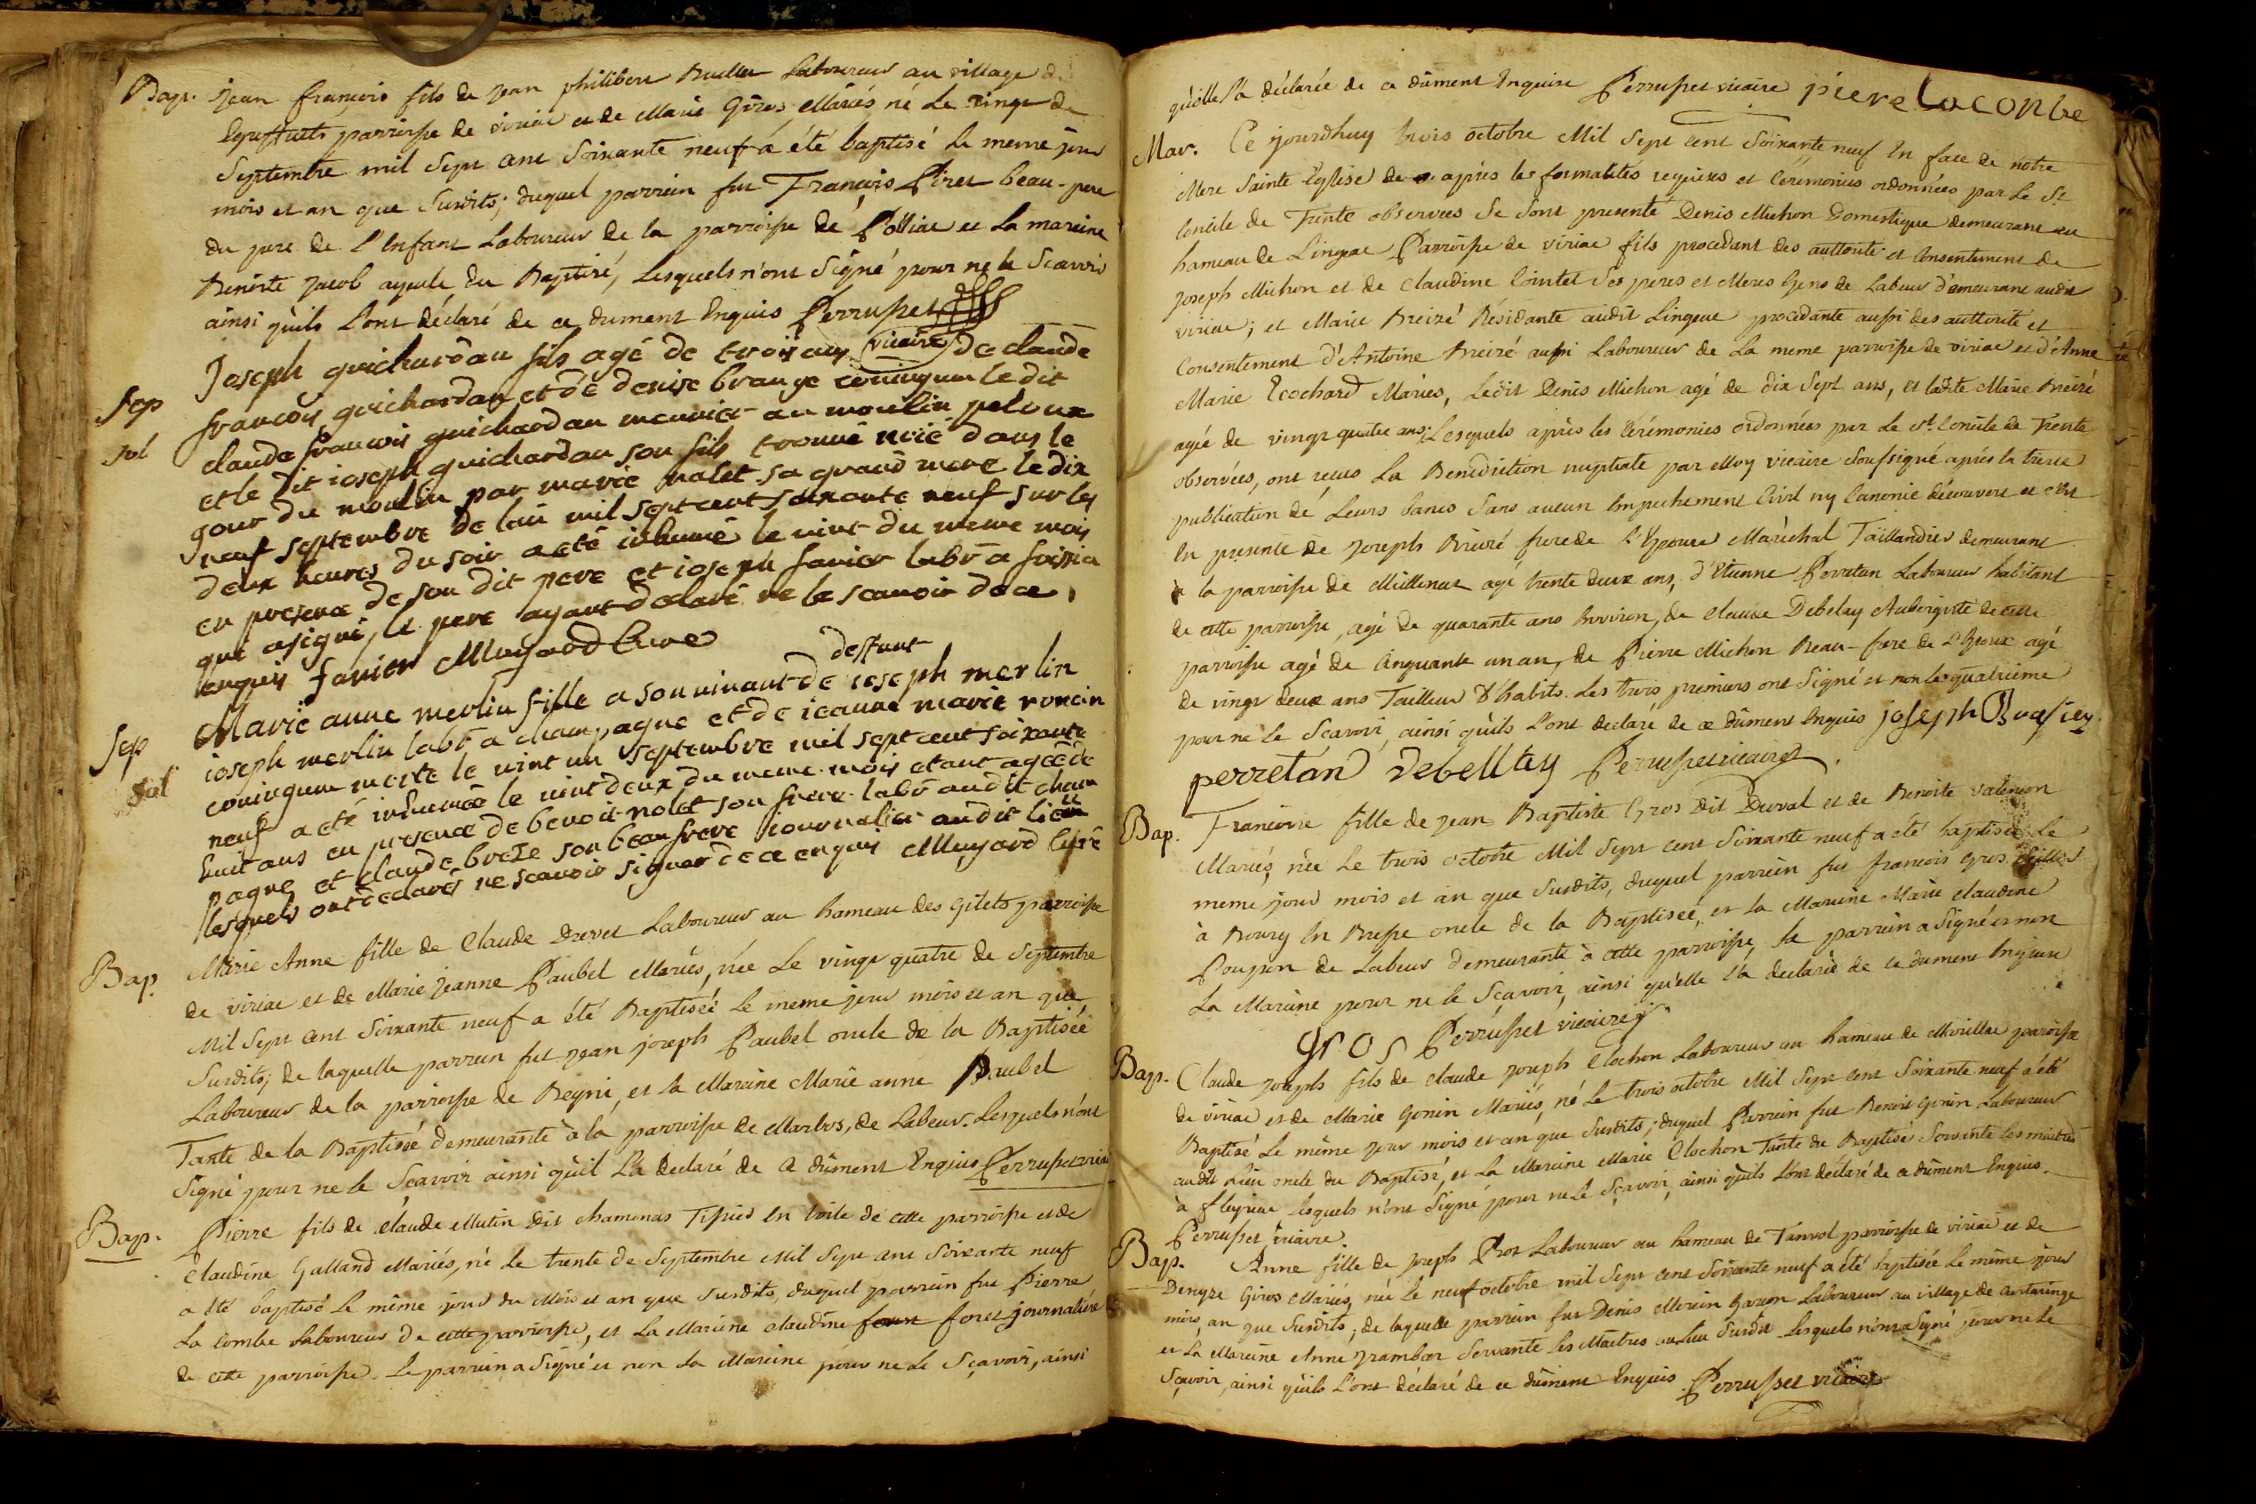 Bap. jean francois fils de jean philibert Buellet Laboureur au village d
parroisse de viriac et de Marie Giros Mariés né Le vingt de
Septembre mil Sept cent Soixante neuf a été baptisé Le meme jour
mois et an que Susdits; duquel parrein fut François Piret beau-pere
du pere de L'Enfant Laboureur de la parroisse de Polliac et La mareine
Benoite Jacob ayeule du Baptisé, Lesquels n'ont Signé pour ne le Scavoir
ainsi qu'ils L'ont déclaré de ce dument Enquis Perruset
vicaire
Sep Joseph guichardan fils agé de trois ans de claude
francois guichardan et de denise brange coningum le dit
sol claude francois guichardan meunier au moulin peloux
et le dit ioseph guichardan son fils trouvé noié dans le
gour du moulin par marie nalet sa grand mere le dix
neuf septembre de lan mil sept cent soixante neuf sur les
deux heures du soir a eté inhumé le vint du meme mois
en presence de son dit pere et ioseph favier labr a foissia
qui a signé, le pere ayant declaré ne le scavoir de ce
enquis favier Mugard Cure
deffunt
Sep Marie anne merlin fille a son vivant de ioseph merlin
ioseph merlin labr a champagne et de ieanne marie roncin
sol coningum morte le vint un septembre mil sept cent soixante
neuf a eté inhumée le vint deux du meme mois etant agée de
huit ans en presence de benoit nolet son frere labr audit cham
pagne, et claude breze son beau frere journalier audit lieu
lesquels ont declarés ne scavoir signer de ce enquis Mugard Curé
Bap. Marie Anne fille de Claude Drevet Laboureur au hameau des Gilets parroisse
de viriac et de Marie Jeanne Paubel Mariés, née Le vingt quatre de Septembre
Mil Sept cent Soixante neuf a été Baptiseé Le meme jour mois et an que
Susdits; de laquelle parrein fut Jean joseph Paubel oncle de la Baptiseé
Laboureur de la parroisse de Beyni, et la Mareine Marie anne Paubel
Tante de la Baptisée demeurante à la parroisse de Marbos, de Labeur. Lesquels n'ont
Signé pour ne le Sçavoir ainsi qu'il La declaré de ce dûment Enquis Perruset vicai
Bap. Pierre fils de claude Mutin dit chamonas Tissier En toile de cette parroisse et de
Claudine Galland Mariés, né Le trente de Septembre Mil Sept cent Soixante neuf
a été baptisé Le même jour du Mois et an que Susdits, duquel parrein fut Pierre
La Combe Laboureur de cette parroisse, et La Mareine claudine foret journaliére
de cette parroisse. Le parrein a Signé et non La Mareine pour ne Le Sçavoir, ainsi
qu'elle l'a déclarée de ce dûment Enquise Perruset vicaire piere laconbe
Mar. Ce jourdhuy trois octobre Mil Sept cent Soixante neuf En face de notre
Mere Sainte Eglise de apres les formalités requises et Cérémonies ordonnées par Le St
Concile de Trente observées Se Sont presenté Denis Michon Domestique demeurant au
hameau de Lingeat Parroisse de viriac fils procedant des authorité et Consentement de
Joseph Michon et de Claudine Cointet Ses peres et Meres Gens de Labeur demeurant audit
viriac; et Marie Breizé Résidante audit Lingeat procedante aussi des authorité et
Consentement d'Antoine Breizé aussi Laboureur de La meme parroisse de viriac et d'Anne
Marie Ecochard Mariés, Ledit Denis Michon agé de dix Sept ans, et ladite Marie Breizé
agée de vingt quatre ans; Lesquels après les Cérémonies ordonnées par Le St. Concile de Trente
observées, ont reçus La Benediction nuptiale par Moy vicaire Soussigné après la treize
publication de Leurs bancs Sans aucun Empechement Civil ny Canonic découvert et c'est
En presence de Joseph Breizé frere de L'Epouse Maréchal Taillandier demeurant
à la parroisse de Meillonnat agé trente deux ans, d'Etienne Perretan Laboureur habitant
de cette parroisse, agé de quarante ans Environ, de claude Debelay Aubergiste de cette
parroisse agé de Cinquante un an, de Pierre Michon Beau-frere de L'Epoux agé
de vingt deux ans Tailleur d'habits. Les trois premiers ont Signé et non Les quatrieme
pour ne Le Scavoir, ainsi qu'ils L'ont declaré de ce dûment Enquis joseph
perretan debellay Perruset vicaire
Bap. Francoise fille de jean Baptiste Gros dit Duval et de Benoite
Mariés, née Le trois octobre Mil Sept cent Soixante neuf a été baptisée Le
meme jour mois et an que Susdits, duquel parrein fut francois Gros
à Bourg En Bresse oncle de la Baptiseé, et la Mareine Marie claudine
Poupon de Labeur demeurante à cette parroisse, Le parrein a Signé et non
La Mareine pour ne le Sçavoir, ainsi qu'elle l'a declaré de ce dument Enquise
gros Perruset vicaire
Bap. Claude joseph fils de claude joseph Clochon Laboureur au hameau de parroisse
de viriac et de Marie Gonin Mariés, né Le trois octobre Mil Sept cent Soixante neuf a été
Baptisé Le même jour mois et an que Susdits; duquel Parrein fut Benoit Gonin Laboureur
audit Lieu oncle du Baptisé, et La Mareine Marie Clochon Tante du Baptisé Servante Les maitres
à fleyriac Lesquels n'ont Signé pour ne Le Sçavoir, ainsi qu'ils L'ont déclaré de ce dûment Enquis.
Perruset vicaire.
Bap. Anne fille de joseph Prost Laboureur au hameau de Tanvol parroisse de viriac et de
Denyze Giros Mariés, née Le neuf octobre mil Sept cent Soixante neuf a été baptisée Le même jour
mois, an que Susdits; de laquelle parrein fut Denis Morin Garçon Laboureur au village de
et La Mareine Anne Servante Les Maitres au Lieu Susdit Lesquels n'ont Signé pour ne Le
Sçavoir, ainsi qu'ils L'ont déclaré de ce dûment Enquis Perruset vicaire